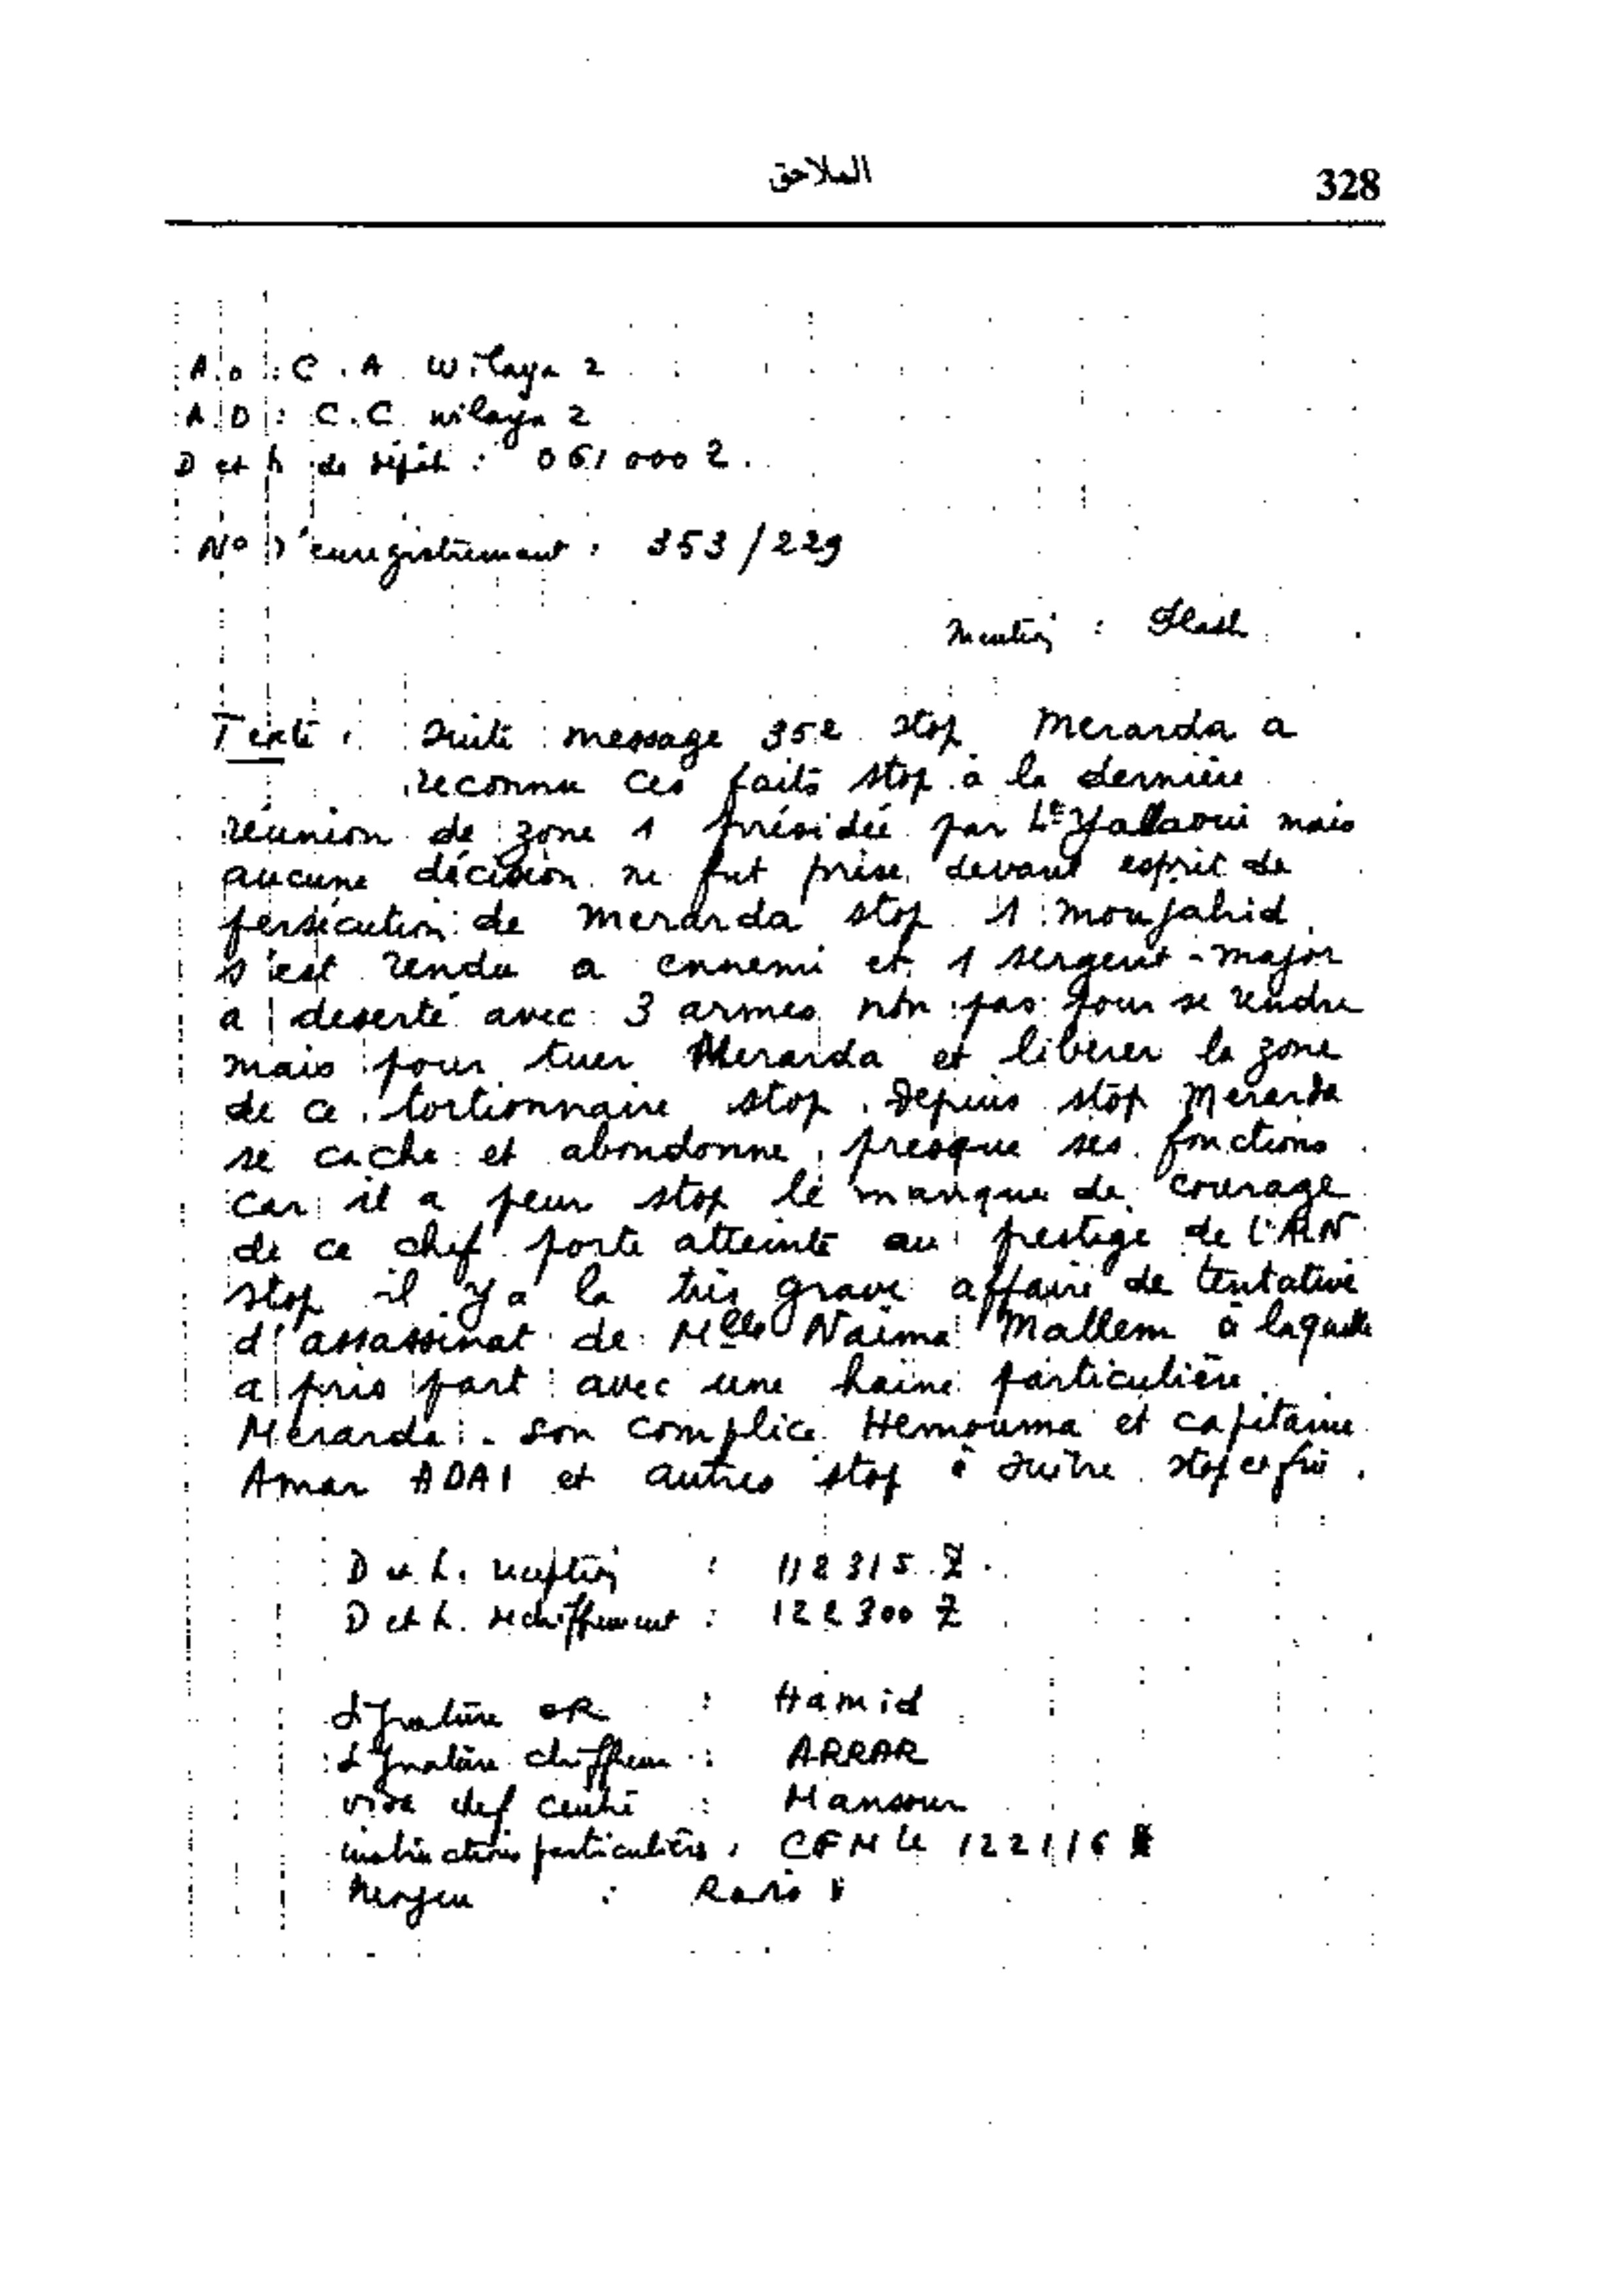 الملاحق
328
A.D : C.A. Wilaya 2
A.D : C.C. wilaya 2
D et h de dépôt : 061000 2.
N° D'enregistrement : 353/229
Mention : Flash
Texte : Suite message 352 stop Merarda a
reconnu ces faits stop à la dernière
réunion de zone 1 présidée par Lt Yalaoui mais
aucune décision ne fut prise devant esprit de
persécution de Merarda stop 1 moujahid
s'est rendu a ennemi et 1 sergent-major
a deserté avec 3 armes non pas pour se rendre
mais pour tuer Merarda et libérer la zone
de ce tortionnaire stop. Depuis stop Merarda
se cache et abondonne presque ses fonctions
car il a peur stop le manque de courage
de ce chef porte atteinte au prestige de l'ALN
stop il y a la très grave affaire de tentative
d'assassinat de Mlle Naima Mallem à laquelle
a pris part avec une haine particulière
Merarda. son complice Hemouma et capitaine
Amar ADAI et autres stop à suivre stop et fin.
D et h. reception : 112315 Z.
D et h. dechiffrement : 122300 Z
Signature OR : Hamid
Signature chiffreur : ARRAR
visa chef centre : Mansour
instructions particulières : CFM le 122116
Moyen : Radio